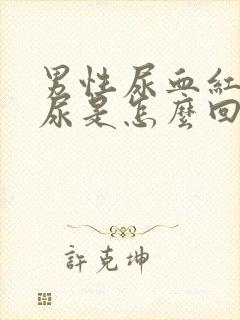 男性尿血紅
尿是怎麼回
許克坤